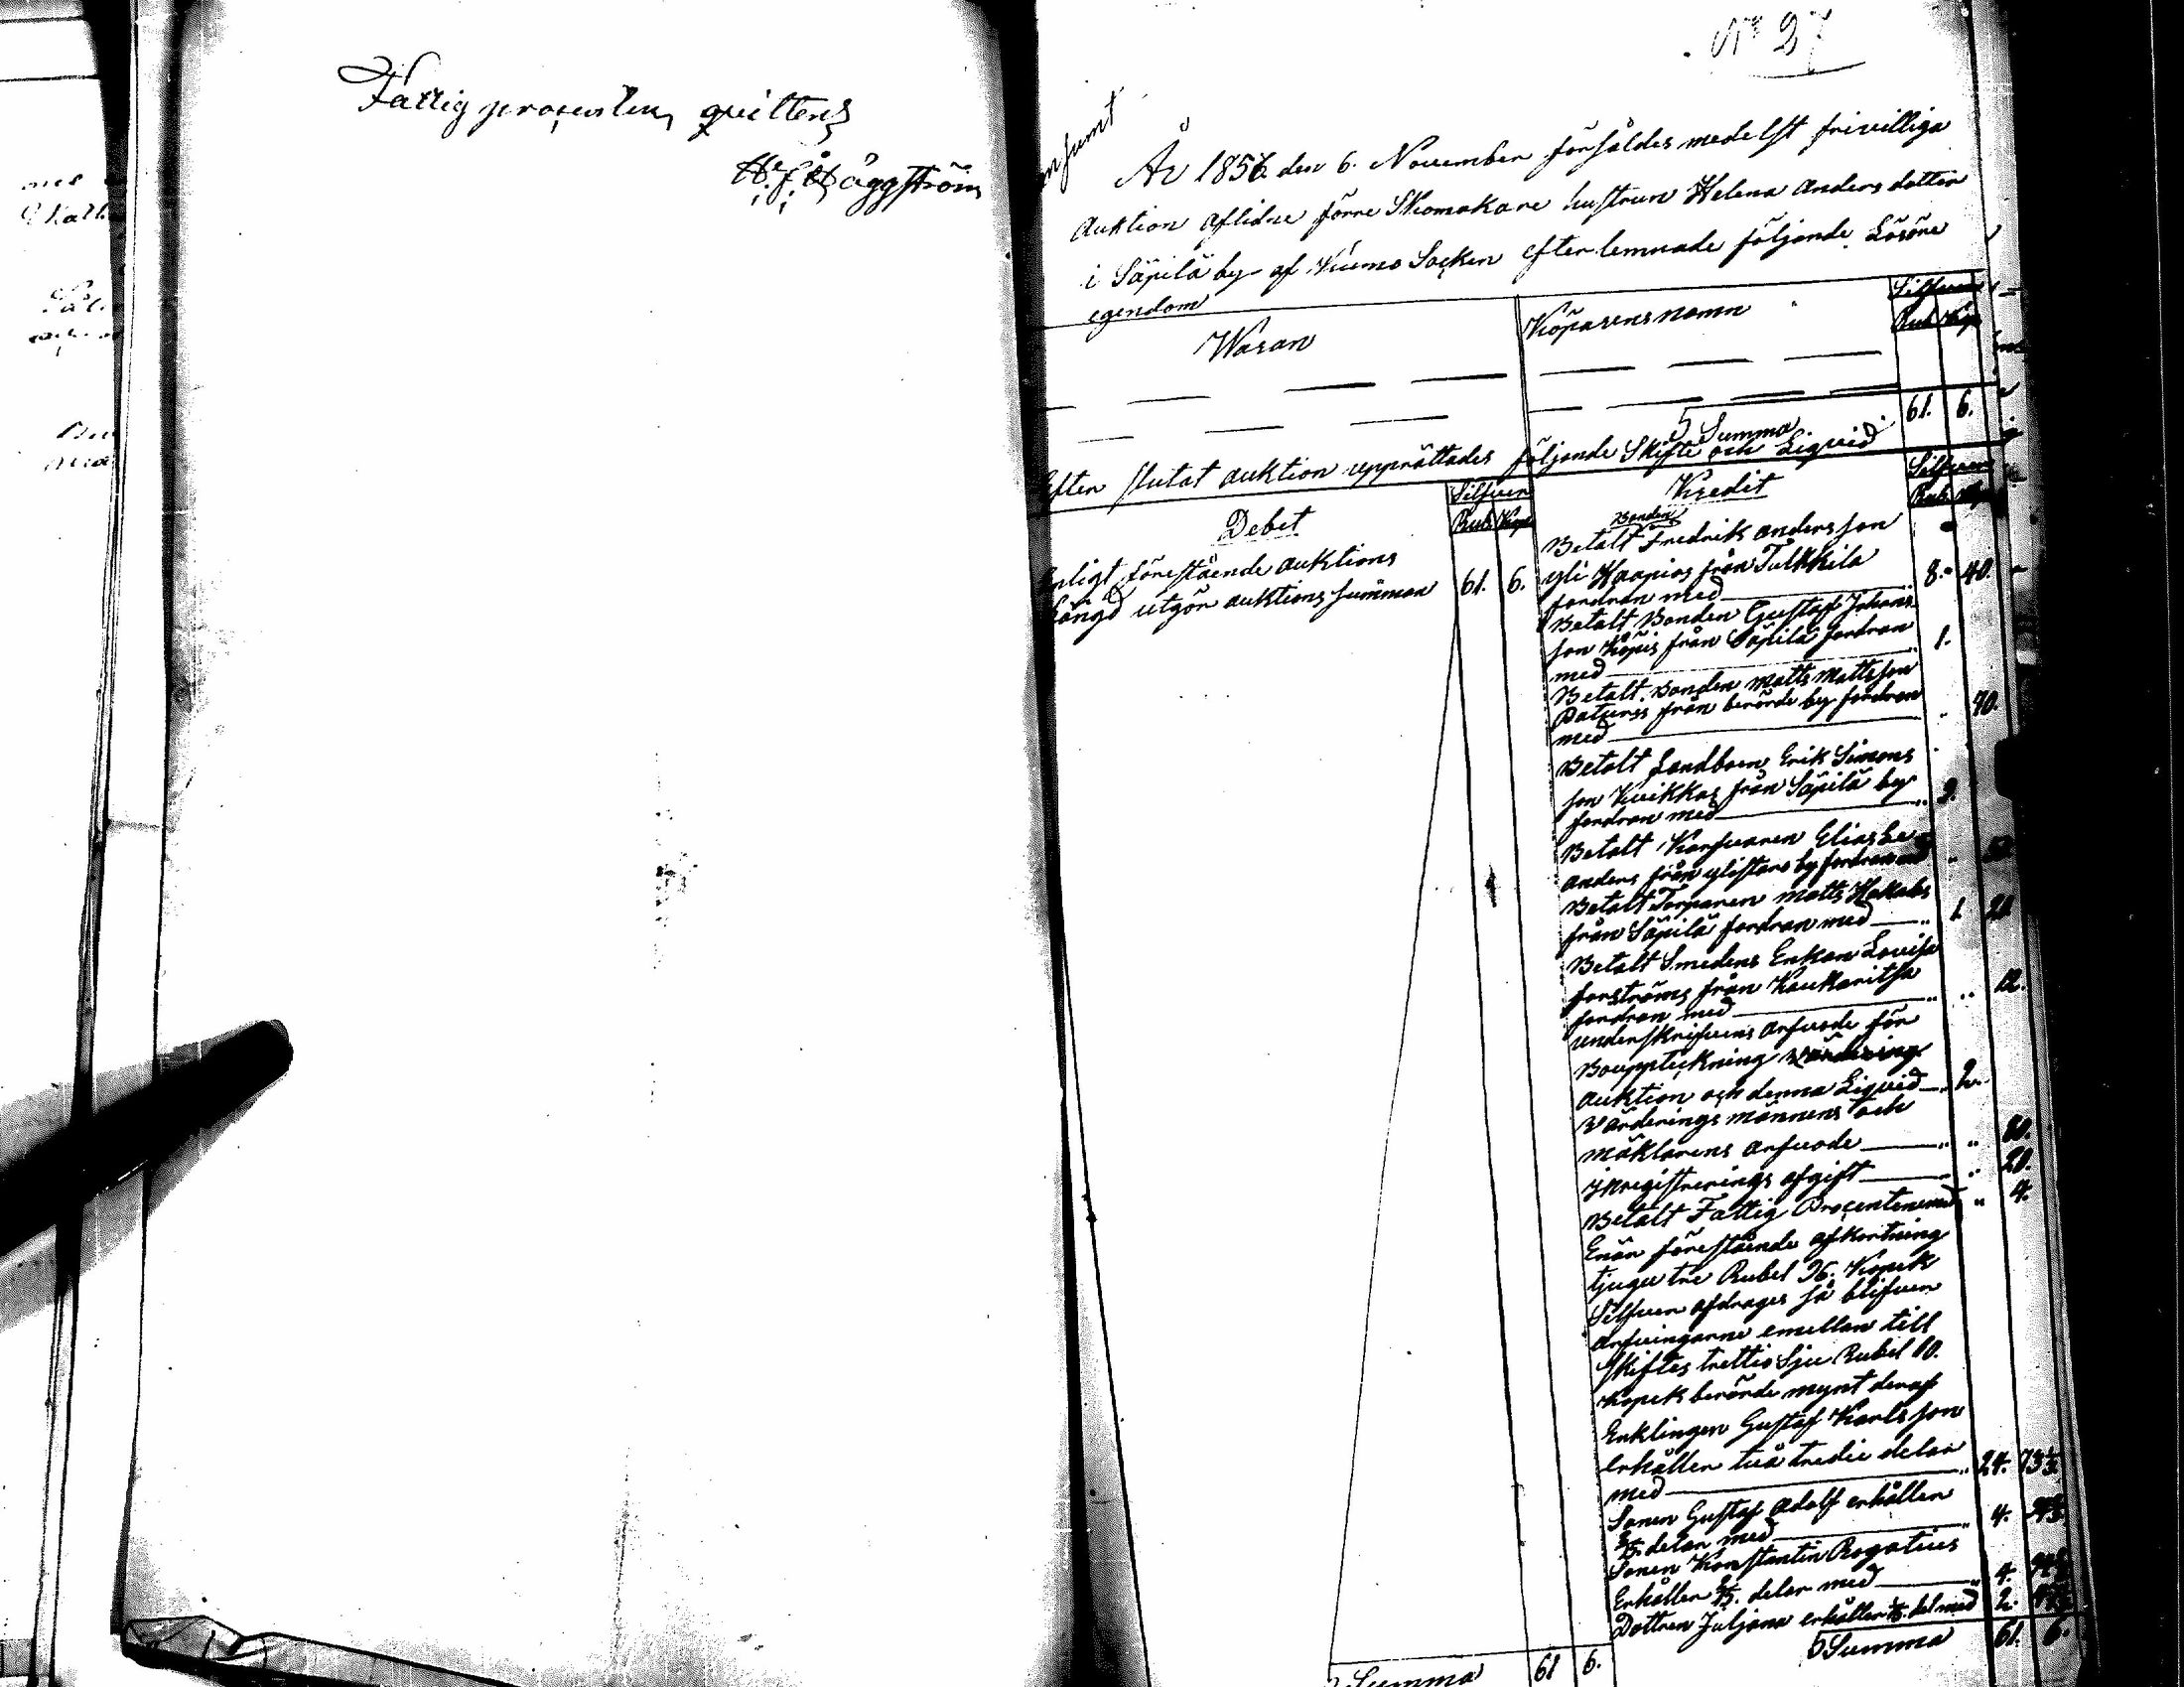 Fattig procenten quitteras
H. J. Häggström
No 27
År 1856 den 6. November försåldes medelst frivilliga
Auktion aflidne förre Skomakare hustrun Helena Andersdotter
i Säpilä by af Kumo Socken efterlemnade följande Lösöre
egendom
Waran
Köparens namn
Silfver
Rub. Kop.
Summa 61. 6.
Efter slutat auktion upprättades följande Skifte och Liqvid
Debet
Silfver
Rub. Kop.
Enligt förestående auktions
längd utgör auktions summan 61. 6.
Summa 61 6.
Kredit
Silfver
Rub.
Bonden
Betalt Fredrik Andersson
yli Haapios från Tulkkila
fordran med 8. 40.
Betalt Bonden Gustaf Johans
son Köpis från Säpilä fordran
med 1.
Betalt Bonden Matts Mattsson
från berörde by fordran
med 70.
Betalt Landboen Erik Simons
son Kuikkas från Säpilä by
fordran med 9.
Betalt Elias
Anders från ylistaro by fordran med
Betalt Torparen Matts
från Säpilä fordran med 1. 21
Betalt Smedens Enkan Lovisa
Forströms från Kaukaritsa
fordran med 12.
underskrifvens arfvode för
Bouppteckning värdering
auktion och denna Liqvid 2.
Värderings männens och
mäklarens arfvode 80.
Inregistrerings afgift 20.
Betalt Fattig Procenten med 4.
Enär förestående afkortning
tjugu tre Rubel 96. Kopek
Silfver afdrages så blifver
arfvingarne emellan till
skiftes trettio Sju Rubel 10.
Kopek berörde mynt deraf
Enklingen Gustaf Karlsson
erhåller två tredie delar
med 24. 73 1/3
Sonen Gustaf Adolf erhåller
delar med 4.
Sonen Konstantin Rogatius
Erhåller delar med 4.
Dottren Juljana erhåller del med 2.
Summa 61. 6.